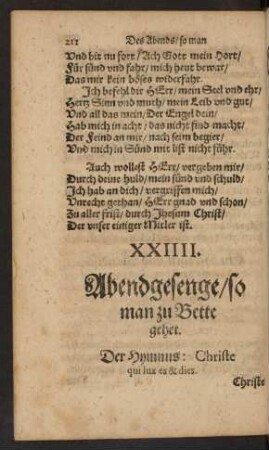 211 Des Abends/ so man
Vnd bit nu fort/ Ach Gott mein Hort/
Für sünd vnd fahr/ mich heut bewar/
Das mir kein böses widerfahr.
Ich befehl dir HErr/ mein Seel vnd ehr/
Hertz Sinn vnd muth/ mein Leib vnd gut/
Vnd all das mein/ Der Engel dein/
Hab mich in acht/ das nicht find macht/
Der Feind an mir/ nach seim begier/
Vnd mich in Sünd mit list nicht führ.
Auch wollest HErr/ vergeben mir/
Durch deine huld/ mein sünd vnd schuld/
Ich hab an dich/ vergriffen mich/
Vnrecht gethan/ HErr gnad vnd schon/
Zu aller frist/ durch Jhesum Christ/
Der vnser einiger Mitler ist.
XXIIII.
Abendgesenge/ so
man zu Bette
gehet.
Der Hymnus: Christe
qui lux es & dies.
Christe